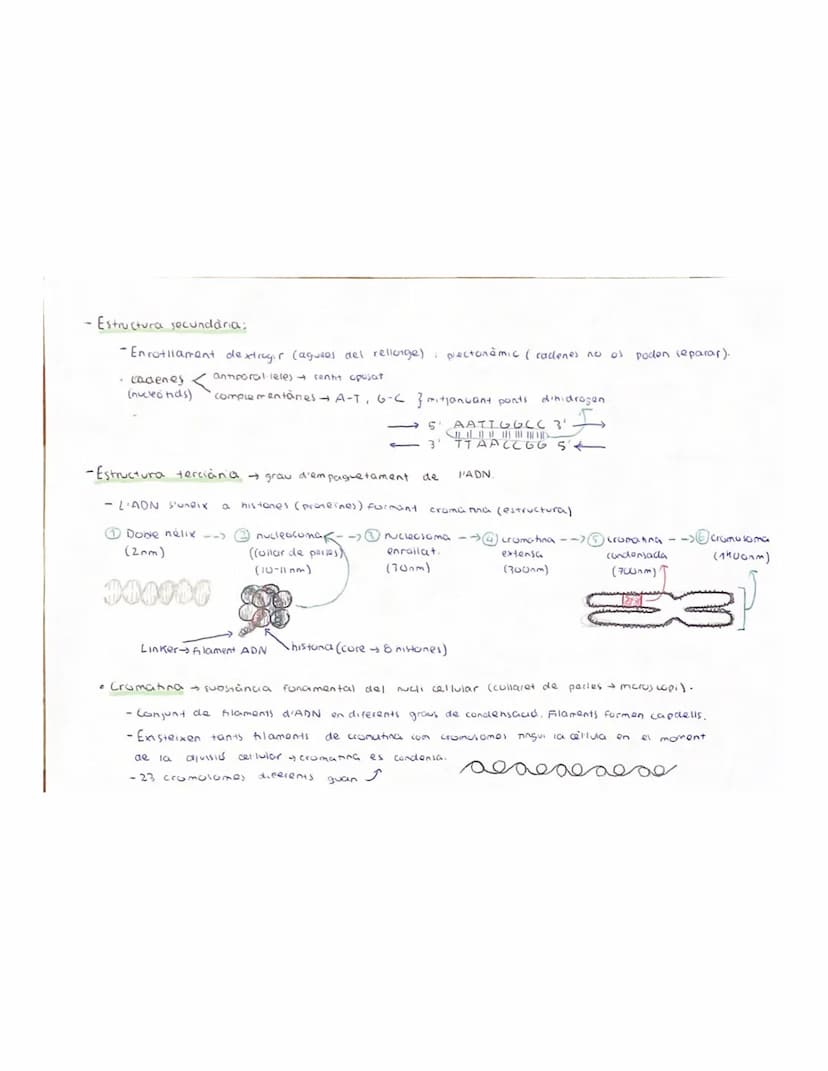 - Estructura secundària:
- Enrotllament dextrogir (agulles del rellotge) i plectonèmic (cadenes no es poden separar).
· cadenes antiparal·leles → sentit oposat
(nucleòtids) complementàries → A-T, G-C } mitjançant ponts d'hidrogen
→ 5' AATTGGCC 3' →
← 3' TTAACCGG 5' ←
- Estructura terciària → grau d'empaquetament de l'ADN.
- L'ADN s'uneix a histones (proteïnes) formant cromatina (estructura)
① Doble hèlix --> ② nucleosoma --> ③ nucleosoma --> ④ cromatina --> ⑤ cromatina --> ⑥ cromosoma
(2nm) (collar de perles) enrollat. extensa condensada (1400nm)
(10-11nm) (30nm) (300nm) (700nm)
Linker → filament ADN histona (core → 8 histones)
• Cromatina → substància fonamental del nucli cel·lular (collaret de perles → microscopi).
- Conjunt de filaments d'ADN en diferents graus de condensació. Filaments formen cabdells.
- Existeixen tants filaments de cromatina com cromosomes tingui la cèl·lula en el moment
de la divisió cel·lular → cromatina es condensa.
- 23 cromosomes diferents